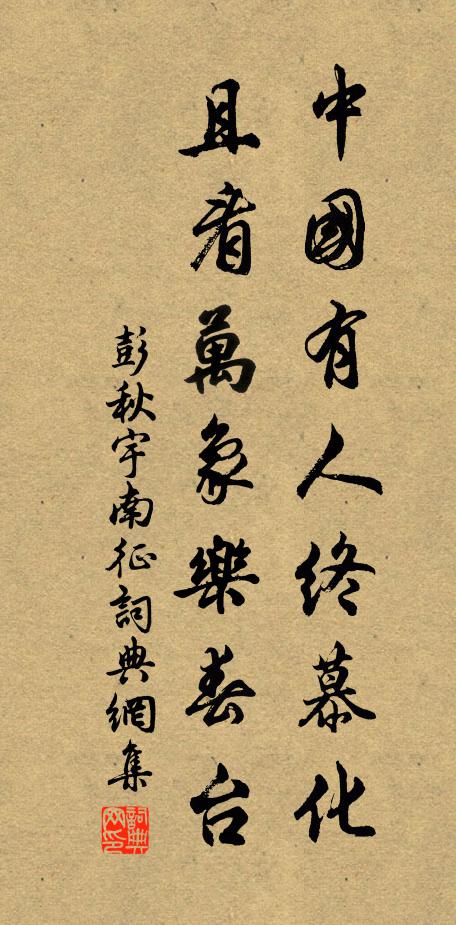 中國有人終慕化
且看萬象樂春台
彭秋宇南征詞典網集
詞典网印